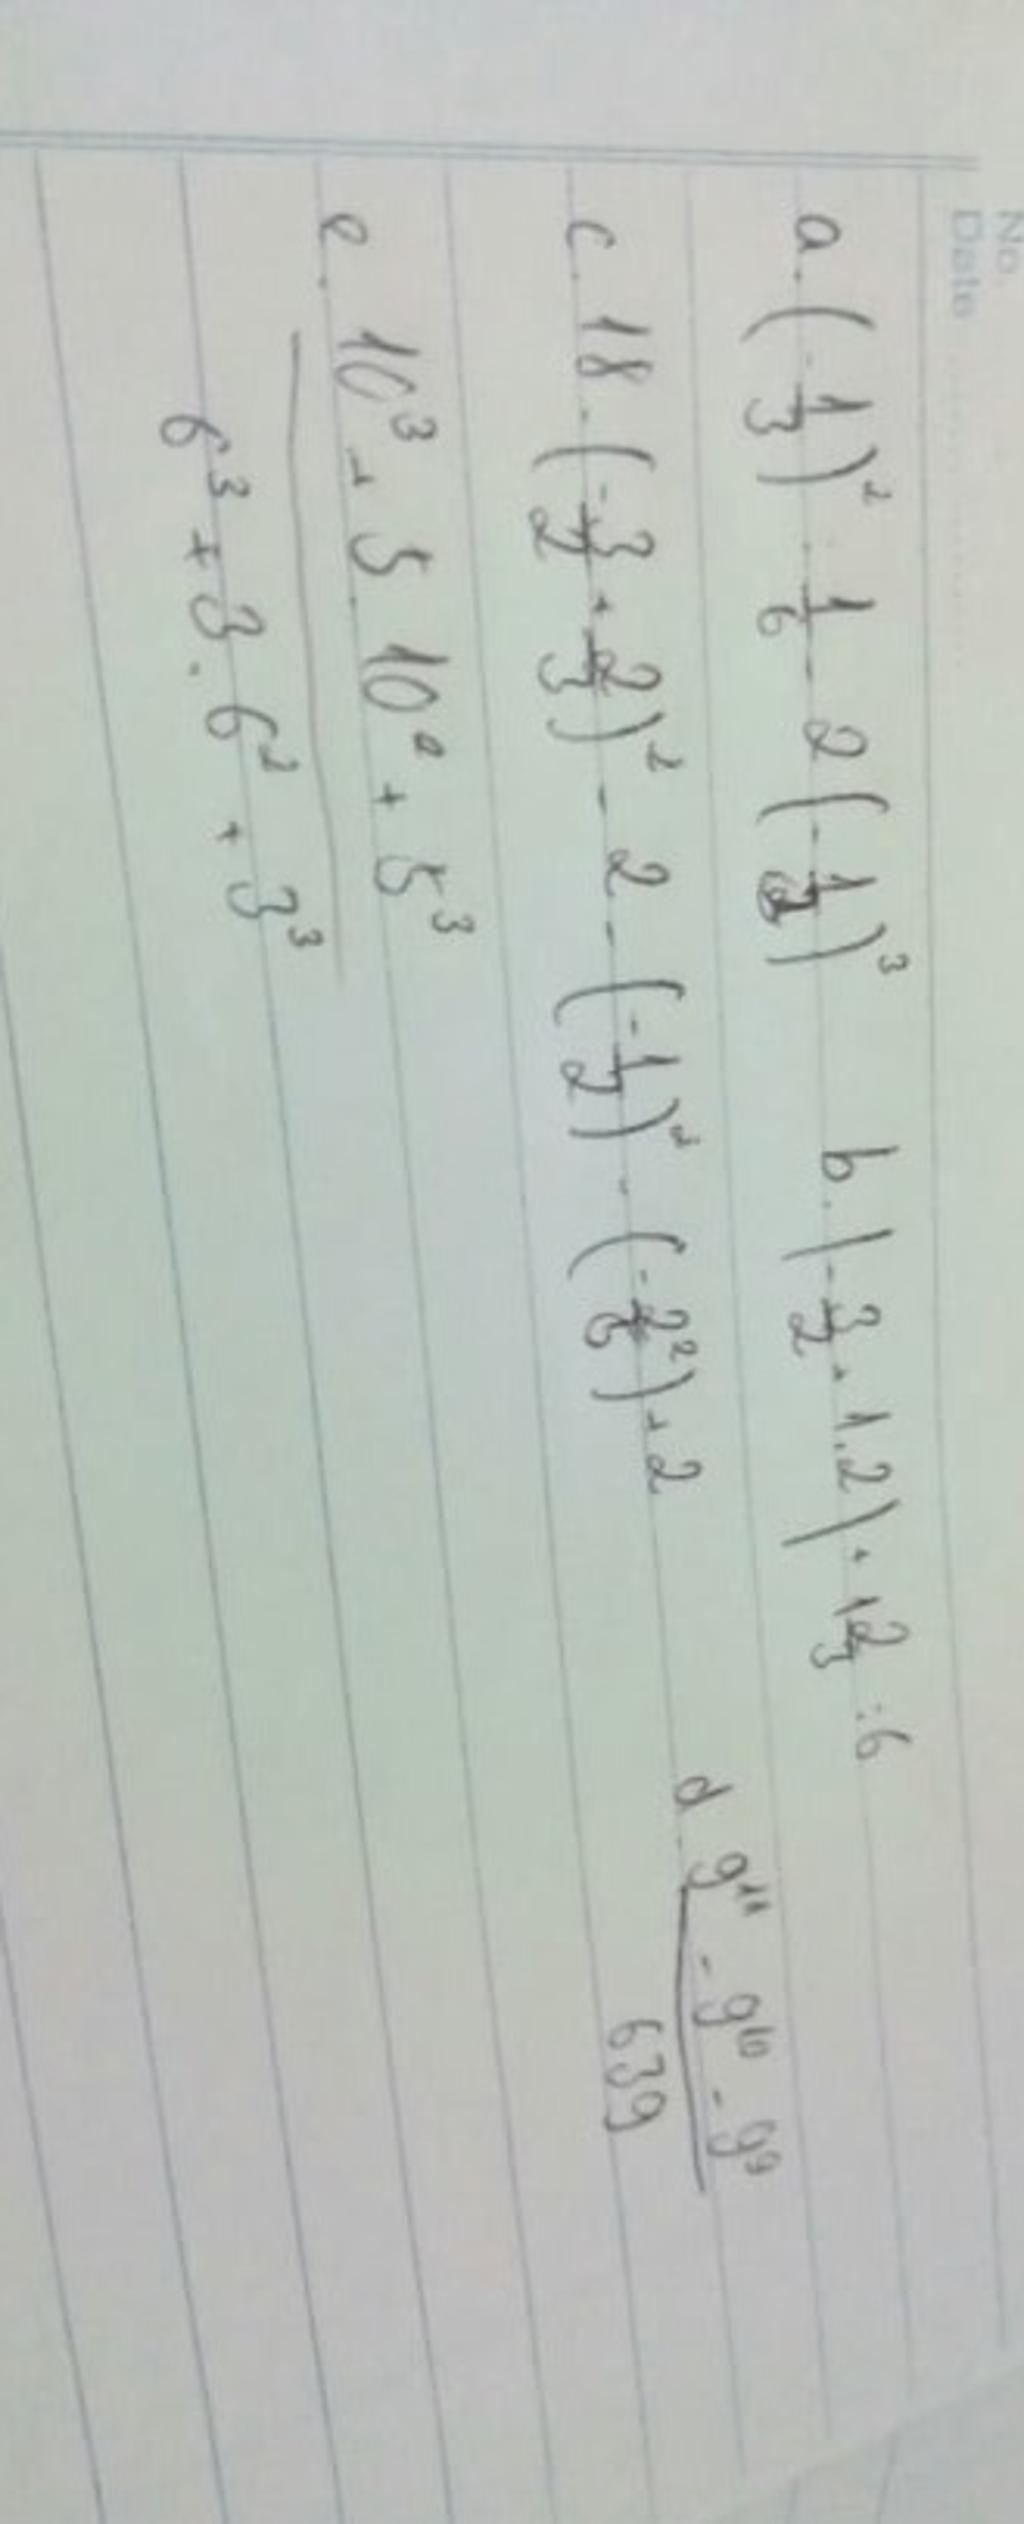 No.
Date
a. (-1/3)² : 1/6 - 2(-1/2)³ b. |-3/2 + 1.2| + 1 2/3 : 6
c. 18 . (-3/2 + 2/3)² - 2 - (-1/2)² - (-2²/6) + 2 d. (9¹¹ - 9¹⁰ - 9⁹)/639
e. 10³ + 5 . 10² + 5³
6³ + 3 . 6² + 3³